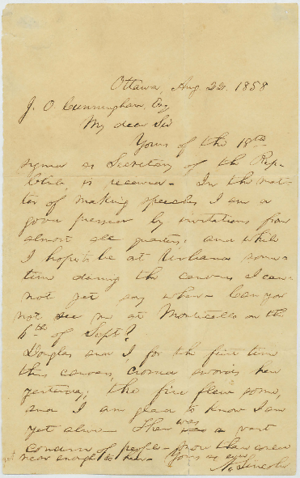 Ottawa, Aug 22. 1858
J. O. Cunningham, Esq
My dear Sir
Yours of the 18th
signed as Secretary of the Rep.
Club, is received. In the mat-
ter of making speeches I am a
good pressed by invitations from
almost all quarters; and while
I hope to be at Urbana some-
time during the canvass I can
not yet say when. Can you
not see me at Monticello on the
6th of Sept?
Douglas and I, for the first time
this canvass, crossed swords here
yesterday; the fire flew some,
and I am glad to know I am
yet alive. There was a vast
concourse of people more than could
near enough to hear. Yours as ever
A. Lincoln